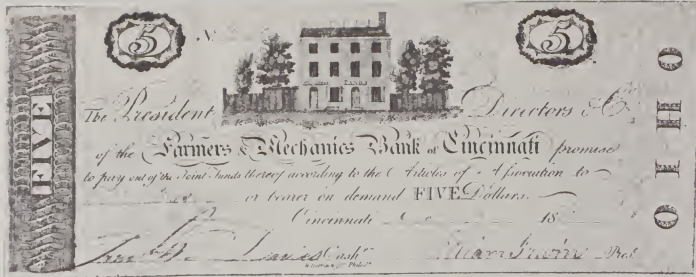 5 No 5
FIVE
The President Directors & Co
of the Farmers & Mechanics Bank of Cincinnati promise
to pay out of the Joint Funds thereof according to the Articles of Association to
or bearer on demand FIVE Dollars.
Cincinnati 18
Davies Cashr Irwin Pres
OIHO